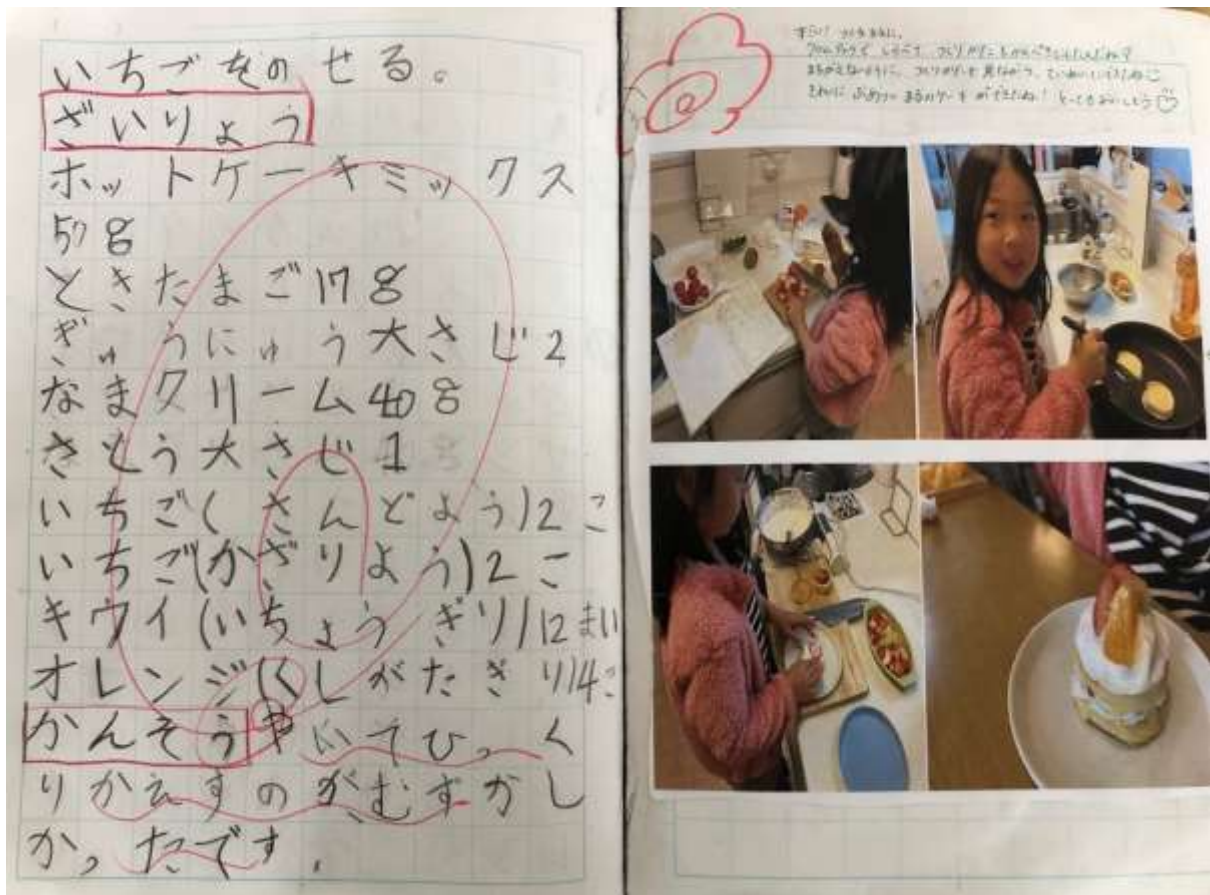 いちごをのせる。
ざいりょう
ホットケーキミックス
57g
ときたまご17g
ぎゅうにゅう大さじ2
なまクリーム40g
さとう大さじ1
いちご(さんどよう)2こ
いちご(かざりよう)2こ
キウイ(いちょうぎり)12まい
オレンジ(くしがたぎり)4こ
かんそうやいてひっく
りかえすのがむずかし
かったです.
すごい!
しらべて つくりかたも
まちがえないように、つくりかたを見ながら、ていねいに
きれいに
まるのケーキができたね!とってもおいしそう